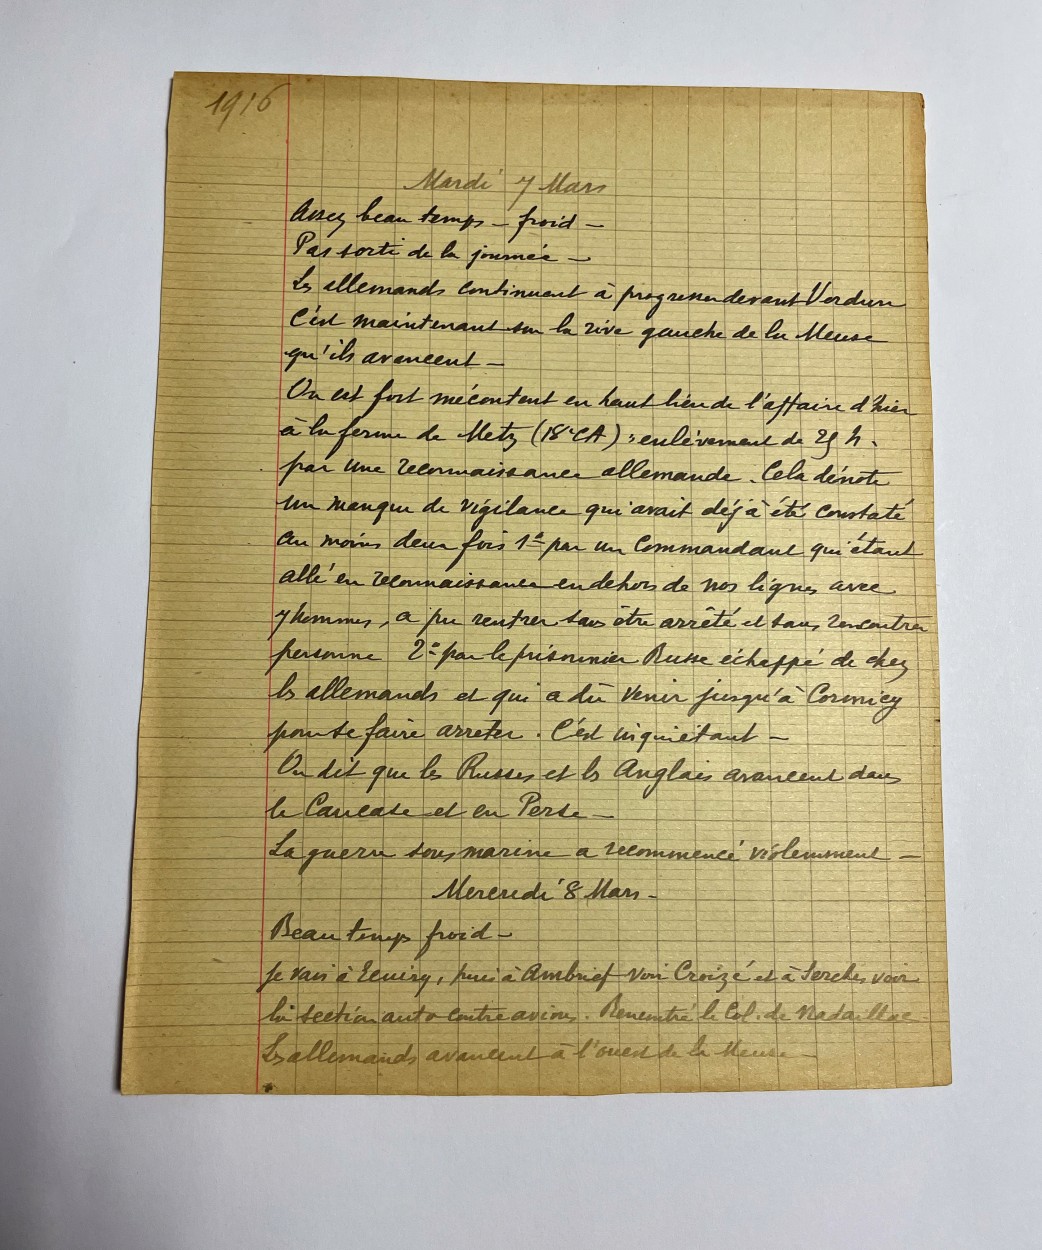 1916
Mardi 7 Mars
Assez beau temps – froid –
Pas sorti de la journée –
Les allemands continuent à progresser devant Verdun
C'est maintenant sur la rive gauche de la Meuse
qu'ils avancent –
On est fort mécontent en haut lieu de l'affaire d'hier
à la ferme de Metz (18e CA) : enlèvement de h.
par une reconnaissance allemande. Cela dénote
un manque de vigilance qui avait déjà été constaté
au moins deux fois 1º par un Commandant qui étant
allé en reconnaissance en dehors de nos lignes avec
7 hommes, a pu rentrer sans être arrêté et sans rencontrer
personne 2º par le prisonnier Russe échappé de chez
les allemands et qui a dû venir jusqu'à Cormicy
pour se faire arrêter. C'est inquiétant –
On dit que les Russes et les Anglais avancent dans
le Caucase et en Perse –
La guerre sous marine a recommencé violemment –
Mercredi 8 Mars –
Beau temps froid –
Je vais à Ecuiry, puis à Ambrief voir Croizé et à Serches voir
la section auto contre avions. Rencontré le Col. de Nadaillac
Les allemands avancent à l'ouest de la Meuse –